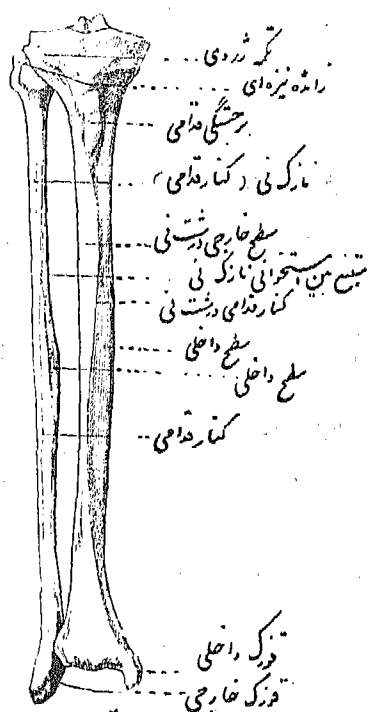 تکمه ژردی
زائده نیزه‌ای
برجستگی قدامی
نازک نی (کنار قدامی)
سطح خارجی درشت نی
تیغ بین استخوانی نازک نی
کنار قدامی درشت نی
سطح داخلی
سطح داخلی
کنار قدامی
قوزک داخلی
قوزک خارجی